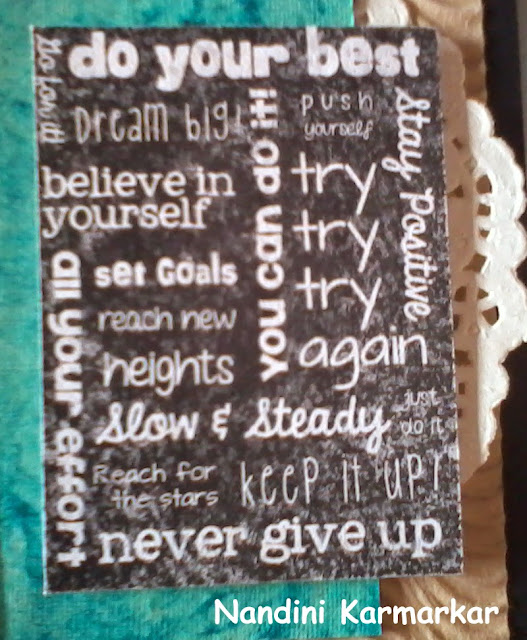 Go for it!
do your best
Dream big!
push
yourself
Stay Positive
believe in
yourself
you can do it!
try
try
try
again
all your effort
set Goals
reach new
heights
Slow & Steady
just
do it
Reach for
the stars
keep it up!
never give up
Nandini Karmarkar